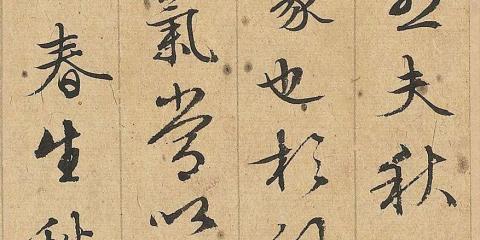 夫秋
象也於行
氣常以
春生秋